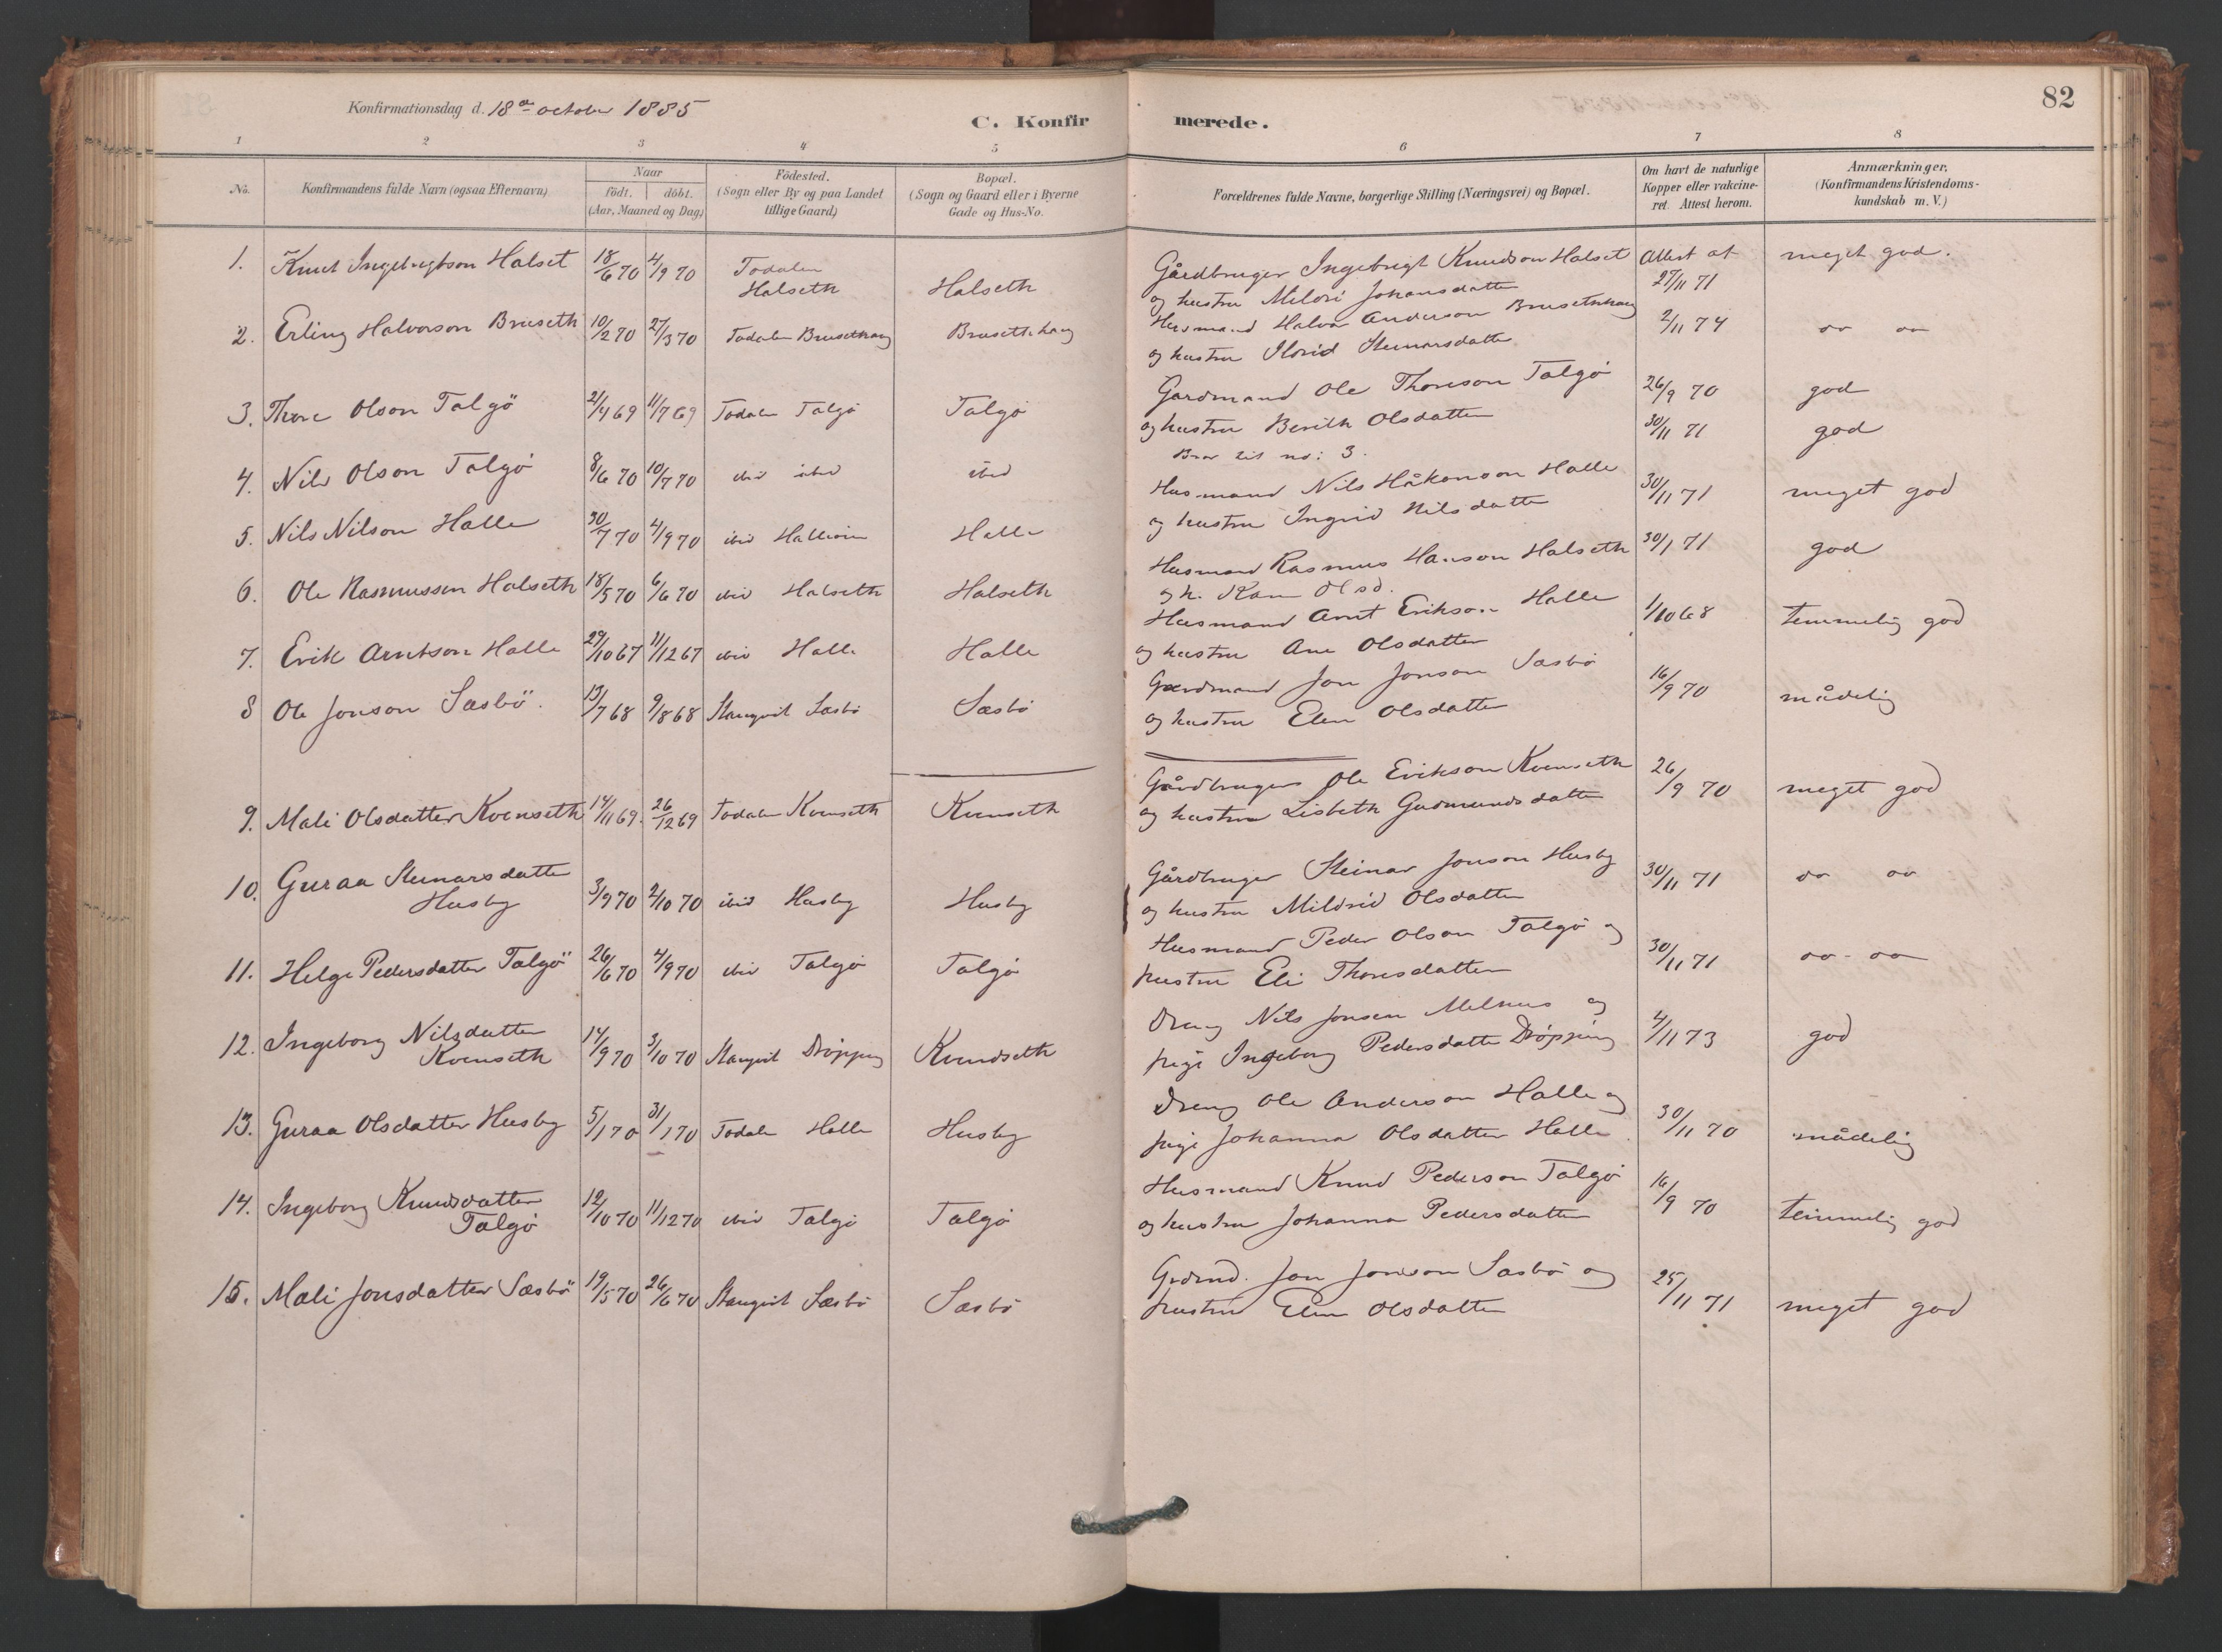 Konfirmationsdag d. 18de october 1885
C. Konfirmerede.
82
1 2 3 4 5 6 7 8
No.
Konfirmandens fulde Navn (ogsaa Efternavn)
Naar
födt. döbt.
(Aar, Maaned og Dag)
Födested.
(Sogn eller By og paa Landet
tillige Gaard)
Bopæl.
(Sogn og Gaard eller i Byerne
Gade og Hus-No.
Forældrenes fulde Navne, borgerlige Stilling (Næringsvei) og Bopæl.
Om havt de naturlige
Kopper eller vakcine-
ret. Attest herom.
Anmærkninger,
(Konfirmandens Kristendoms-
kundskab m. V.)
1. Knut Ingebrigtson Halset 18/6 70 4/9 70 Todalen Halseth Halseth
Gårdbruger Ingebrigt Knudson Halset Attest af meget god.
og hustru Johansdatter 27/11 71
2. Erling Halvorson Bruseth 10/2 70 27/3 70 Todalen Brusethaug Brusethaug
Husmand Halvor Anderson Brusethaug 2/11 74 oo oo
og hustru Steinarsdatter
3. Thore Olson Talgö 2/4 69 11/7 69 Todalen Talgö Talgö
Gardmand Ole Thoreson Talgö 26/9 70 god
og hustru Berith Olsdatter
4. Nils Olson Talgö 8/6 70 10/7 70 ibid ibid ibid
Bror til no: 3. 30/11 71 god
5. Nils Nilson Halle 30/7 70 4/9 70 ibid Halle
Husmand Nils Håkonson Halle 30/11 71 meget god
og hustru Ingrid Nilsdatter
6. Ole Rasmussen Halseth 18/5 70 6/6 70 ibid Halseth Halseth
Husmand Rasmus Hanson Halseth 30/1 71 god
og h. Kari Olsd.
7. Erik Arntson Halle 29/10 67 11/12 67 ibid Halle Halle
Husmand Arnt Erikson Halle 1/10 68 temmelig god
og hustru Ane Olsdatter
8 Ole Jonson Sæsbö. 13/7 68 9/8 68 Stangvik Sæsbö Sæsbö
Gardmand Jon Jonson Sæsbö 16/9 70 mådelig
og hustru Elen Olsdatter
9. Mali Olsdatter Kvenseth 14/11 69. 26/12 69 Todalen Kvenseth Kvenseth
Gårdbruger Ole Erikson Kvenseth 26/9 70 meget god
og hustru Lisbeth Gudmundsdatter
10. Guraa Steinarsdatter
Husby 3/9 70 2/10 70 ibid Husby Husby
Gårdbruger Steinar Jonson Husby 30/11 71 oo oo
og hustru Mildrid Olsdatter
11. Helge Pedersdatter Talgö 26/6 70 4/9 70 ibid Talgö Talgö
Husmand Peder Olson Talgö og 30/11 71 oo - oo
hustru Eli Thoresdatter
12. Ingeborg Nilsdatter
Kvenseth 14/9 70 3/10 70 Stangvik Dröpping Kvendseth
Dreng Nils Jonsen Melhus og 4/11 73 god
pige Ingeborg Pedersdatter Dröpping
13. Guraa Olsdatter Husby 5/1 70 31/1 70 Todalen Halle Husby
Dreng Ole Anderson Halle og 30/11 70 mådelig
pige Johanna Olsdatter Halle
14. Ingeborg Knudsdatter
Talgö 12/10 70 11/12 70 ibid Talgö Talgö
Husmand Knud Pederson Talgö 16/9 70 temmelig god
og hustru Johanna Pedersdatter
15. Mali Jonsdatter Sæsbö 19/5 70 26/6 70 Stangvik Sæsbö Sæsbö
Grdmd. Jon Jonson Sæsbö og 25/11 71 meget god
hustru Elen Olsdatter